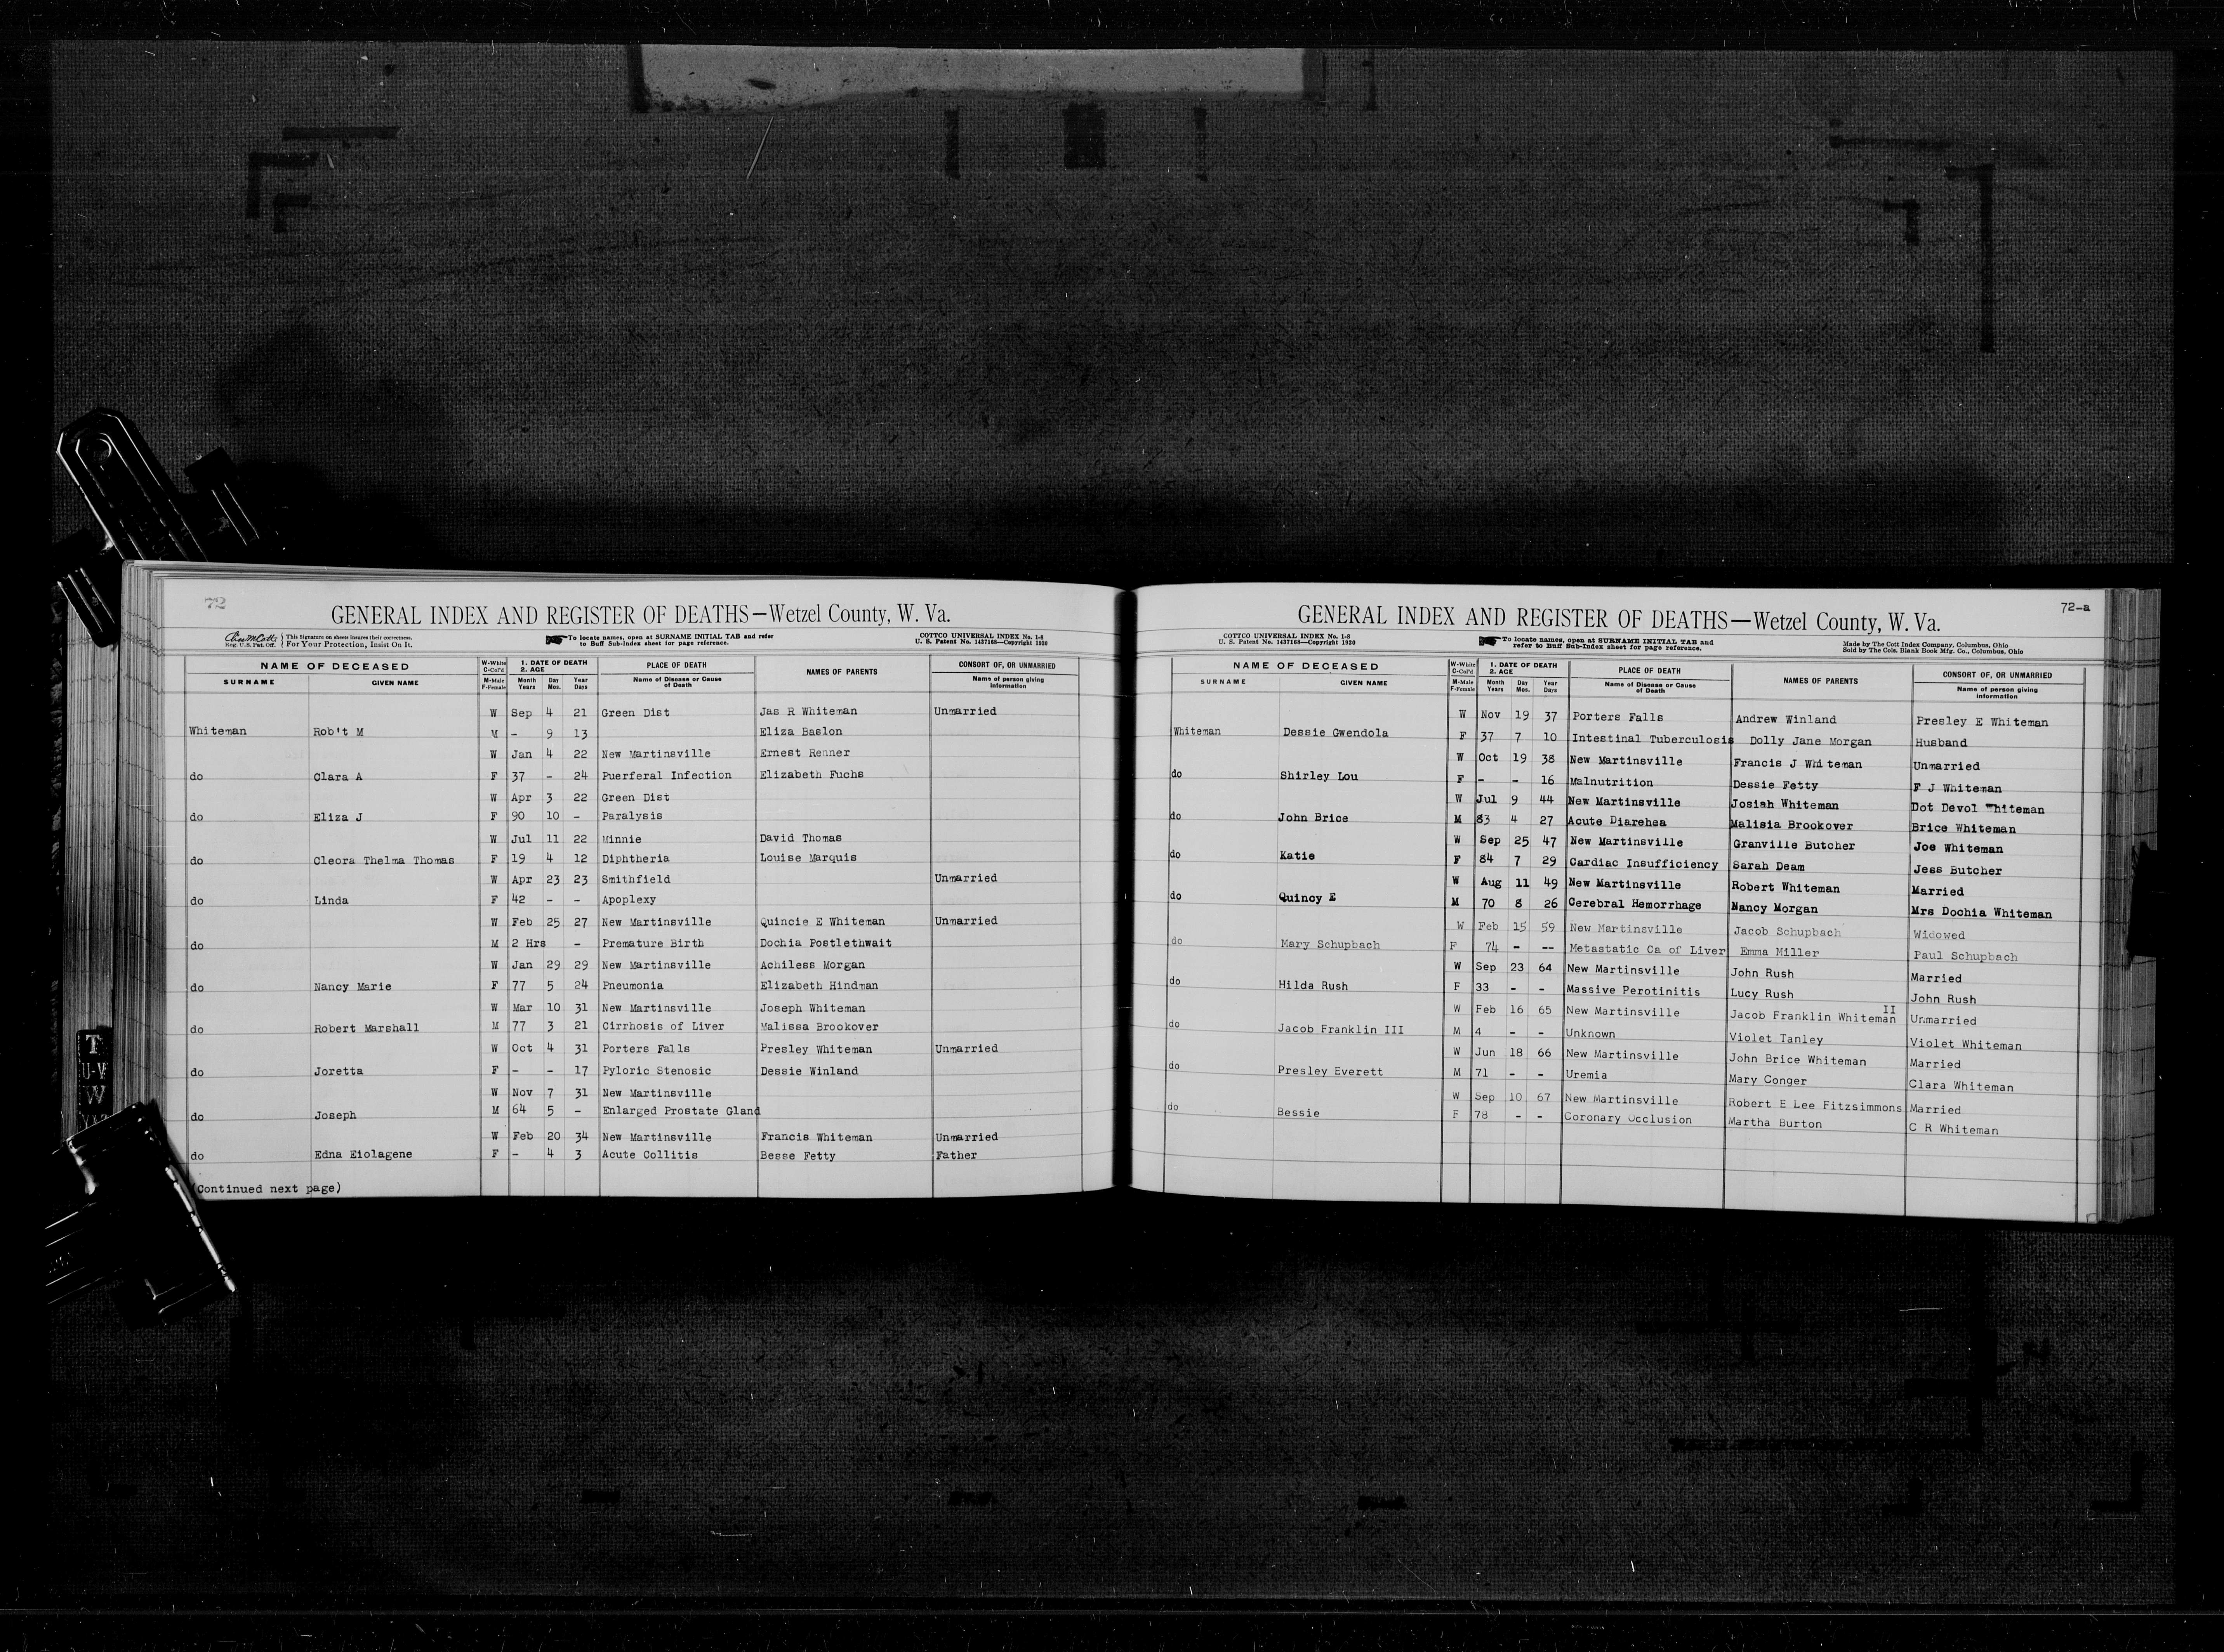 72
GENERAL INDEX AND REGISTER OF DEATHS—Wetzel County, W. Va.
Reg. U.S. Pat. Off. This Signature on sheets insures their correctness.
For Your Protection, Insist On It.
To locate names, open at SURNAME INITIAL TAB and refer
to Buff Sub-Index sheet for page reference.
COTTCO UNIVERSAL INDEX No. 1-8
U. S. Patent No. 1437168—Copyright 1930
NAME OF DECEASED W-White C-Col'd 1. DATE OF DEATH 2. AGE PLACE OF DEATH NAMES OF PARENTS CONSORT OF, OR UNMARRIED
SURNAME GIVEN NAME M-Male F-Female Month Years Day Mos. Year Days Name of Disease or Cause of Death Name of person giving information
W Sep 4 21 Green Dist Jas R Whiteman Unmarried
Whiteman Rob't M M - 9 13 Eliza Baslon
W Jan 4 22 New Martinsville Ernest Renner
do Clara A F 37 - 24 Puerferal Infection Elizabeth Fuchs
W Apr 3 22 Green Dist
do Eliza J F 90 10 - Paralysis
W Jul 11 22 Minnie David Thomas
do Cleora Thelma Thomas F 19 4 12 Diphtheria Louise Marquis
W Apr 23 23 Smithfield Unmarried
do Linda F 42 - - Apoplexy
W Feb 25 27 New Martinsville Quincie E Whiteman Unmarried
do M 2 Hrs - Premature Birth Dochia Postlethwait
W Jan 29 29 New Martinsville Achiless Morgan
do Nancy Marie F 77 5 24 Pneumonia Elizabeth Hindman
W Mar 10 31 New Martinsville Joseph Whiteman
do Robert Marshall M 77 3 21 Cirrhosis of Liver Malissa Brookover
W Oct 4 31 Porters Falls Presley Whiteman Unmarried
do Joretta F - - 17 Pyloric Stenosic Dessie Winland
W Nov 7 31 New Martinsville
do Joseph M 64 5 - Enlarged Prostate Gland
W Feb 20 34 New Martinsville Francis Whiteman Unmarried
do Edna Eiolagene F - 4 3 Acute Collitis Besse Fetty Father
(Continued next page)
T
U-V
W
72-a
GENERAL INDEX AND REGISTER OF DEATHS—Wetzel County, W. Va.
COTTCO UNIVERSAL INDEX No. 1-8
U. S. Patent No. 1437168—Copyright 1930
To locate names, open at SURNAME INITIAL TAB and
refer to Buff Sub-Index sheet for page reference.
Made by The Cott Index Company, Columbus, Ohio
Sold by The Cols. Blank Book Mfg. Co., Columbus, Ohio
NAME OF DECEASED W-White C-Col'd 1. DATE OF DEATH 2. AGE PLACE OF DEATH NAMES OF PARENTS CONSORT OF, OR UNMARRIED
SURNAME GIVEN NAME M-Male F-Female Month Years Day Mos. Year Days Name of Disease or Cause of Death Name of person giving information
W Nov 19 37 Porters Falls Andrew Winland Presley E Whiteman
Whiteman Dessie Gwendola F 37 7 10 Intestinal Tuberculosis Dolly Jane Morgan Husband
W Oct 19 38 New Martinsville Francis J Whiteman Unmarried
do Shirley Lou F - - 16 Malnutrition Dessie Fetty F J Whiteman
W Jul 9 44 New Martinsville Josiah Whiteman Dot Devol Whiteman
do John Brice M 83 4 27 Acute Diarehea Malisia Brookover Brice Whiteman
W Sep 25 47 New Martinsville Granville Butcher Joe Whiteman
do Katie F 84 7 29 Cardiac Insufficiency Sarah Deam Jess Butcher
W Aug 11 49 New Martinsville Robert Whiteman Married
do Quincy E M 70 8 26 Cerebral Hemorrhage Nancy Morgan Mrs Dochia Whiteman
W Feb 15 59 New Martinsville Jacob Schupbach Widowed
do Mary Schupbach F 74 - -- Metastatic Ca of Liver Emma Miller Paul Schupbach
W Sep 23 64 New Martinsville John Rush Married
do Hilda Rush F 33 - - Massive Perotinitis Lucy Rush John Rush
W Feb 16 65 New Martinsville Jacob Franklin Whiteman II Unmarried
do Jacob Franklin III M 4 - - Unknown Violet Tanley Violet Whiteman
W Jun 18 66 New Martinsville John Brice Whiteman Married
do Presley Everett M 71 - - Uremia Mary Conger Clara Whiteman
W Sep 10 67 New Martinsville Robert E Lee Fitzsimmons Married
do Bessie F 78 - - Coronary Occlusion Martha Burton C R Whiteman